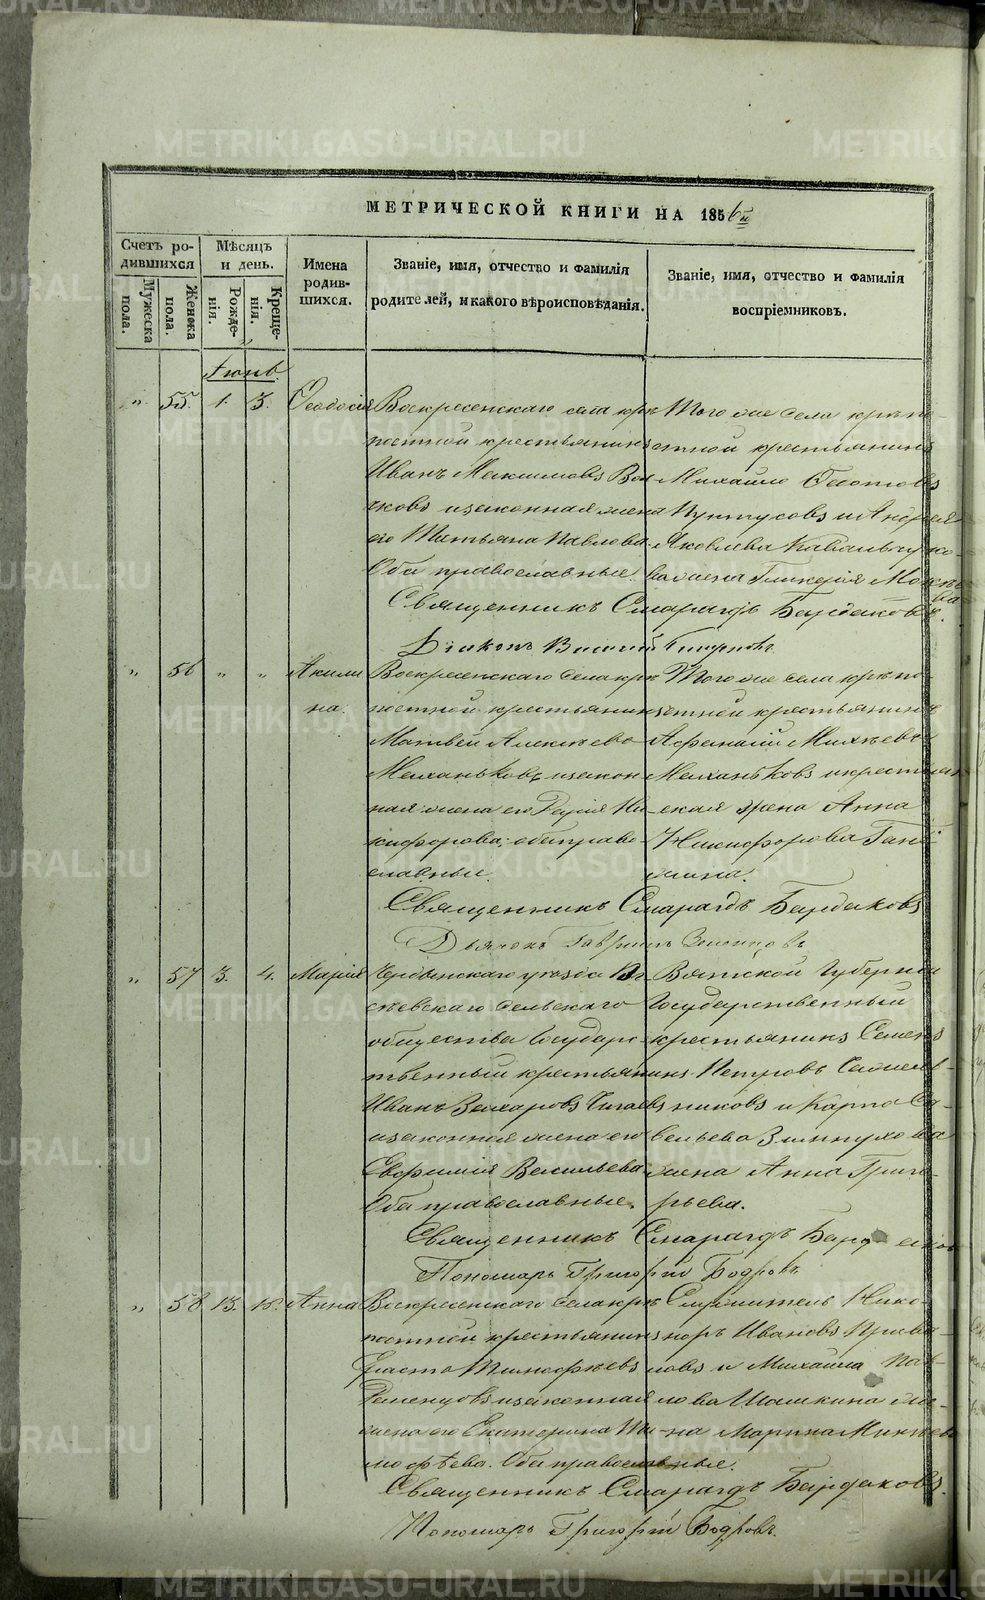 МЕТРИЧЕСКОЙ КНИГИ НА 1856й
Счетъ ро-
дившихся
Мужеска пола.
Женска пола.
Мѣсяцъ
и день.
Рожденія.
Крещенія.
Имена
родив-
шихся.
Званіе, имя, отчество и фамилія
родителей, и какого вѣроисповѣданія.
Званіе, имя, отчество и фамилія
воспріемниковъ.
Іюнь
" 55. 1. 3. Ѳеодосія
Воскресенскаго села крѣ
постной крестьянинъ
Иванъ Максимовъ Вол
ковъ и законная жена
его Татьяна Павлова.
Оба православные.
Того же села крѣпо-
стной крестьянинъ
Михайло
и Андрея
Яковлева
жена Гликерія
Священникъ Смарагдъ Бардаковъ.
" 56 " " Акили
на.
Воскресенскаго села крѣ
постной крестьянинъ
Матвей Алексѣевъ
и закон
ная жена его Дарія Ни
кифорова; оба право
славные.
Того же села крѣпо
стной крестьянинъ
Афанасій Михѣевъ
и крестьян
ская жена Анна
Никифорова
Священникъ Смарагдъ Бардаковъ
Гавріилъ
" 57 3. 4. Марія
Чердынскаго уѣзда
сельскаго
общества Государ-
ственный крестьянинъ
Иванъ Захаровъ
и законная жена его
Евфимія Васильева
Оба православные.
Вятской Губерніи
Государственный
крестьянинъ Семенъ
Петровъ
и Карпа Са-
вельева
жена Анна Григо-
рьева.
Священникъ Смарагдъ Бардаковъ
Пономарь Григорій Бодровъ
" 58 13. 15. Анна
Воскресенскаго села крѣ
постной крестьянинъ
Тимофѣевъ
и законная
жена его Екатерина Ти-
мофѣева. Оба православные.
Служитель Ника-
норъ Ивановъ Прива-
ловъ и Михаила Пав-
лова Шашкина же-
на Марина
Священникъ Смарагдъ Бардаковъ.
Пономарь Григорій Бодровъ.
METRIKI.GASO-URAL.RU